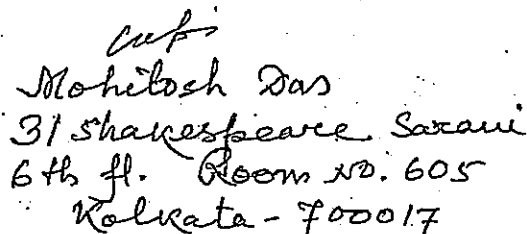 Mohitosh Das
31 Shakespeare Sarani
6th fl. Room No. 605
Kolkata - 700017